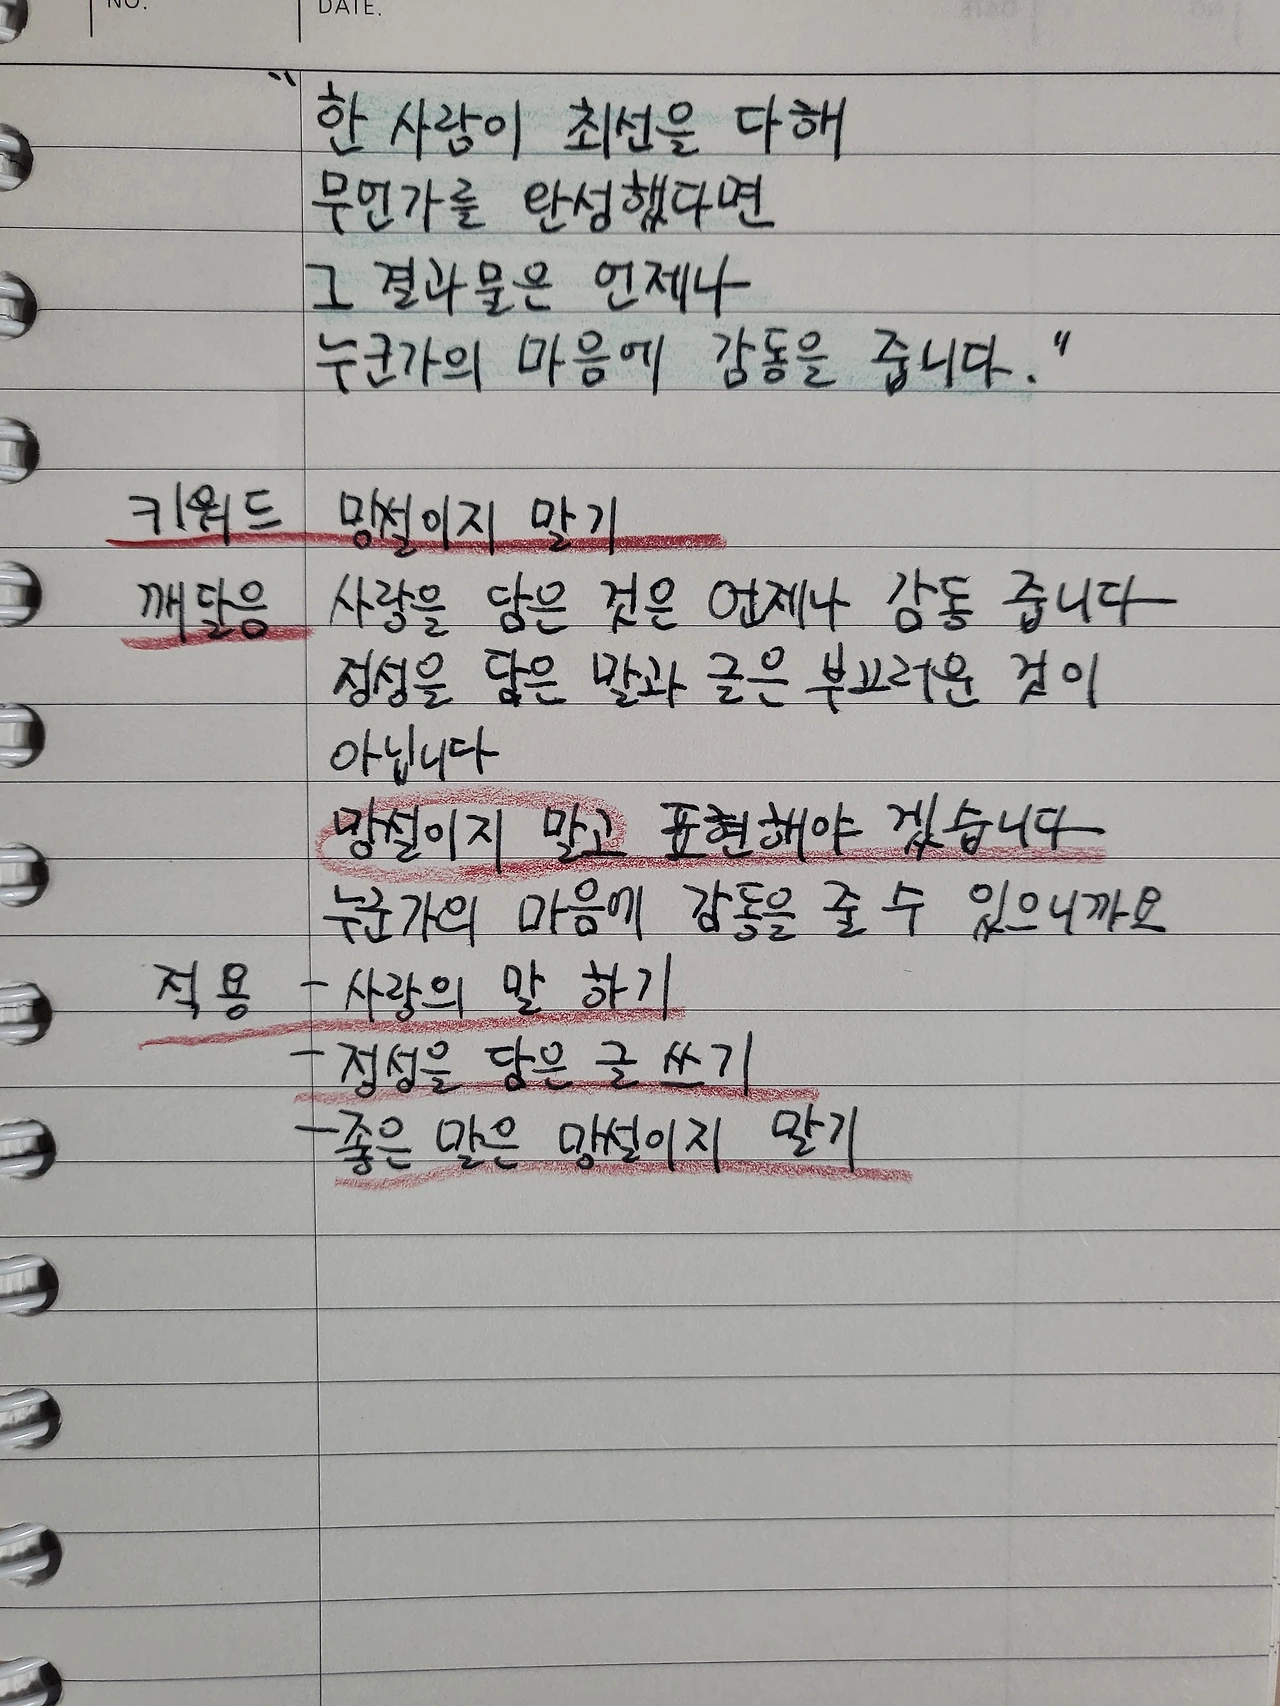 NO.
DATE.
"한 사람이 최선을 다해
무언가를 완성했다면
그 결과물은 언제나
누군가의 마음에 감동을 줍니다."
키워드 망설이지 말기
깨달음 사랑을 담은 것은 언제나 감동 줍니다
정성을 담은 말과 글은 부끄러운 것이
아닙니다
망설이지 말고 표현해야 겠습니다
누군가의 마음에 감동을 줄 수 있으니까요
적용 - 사랑의 말 하기
- 정성을 담은 글 쓰기
- 좋은 말은 망설이지 말기